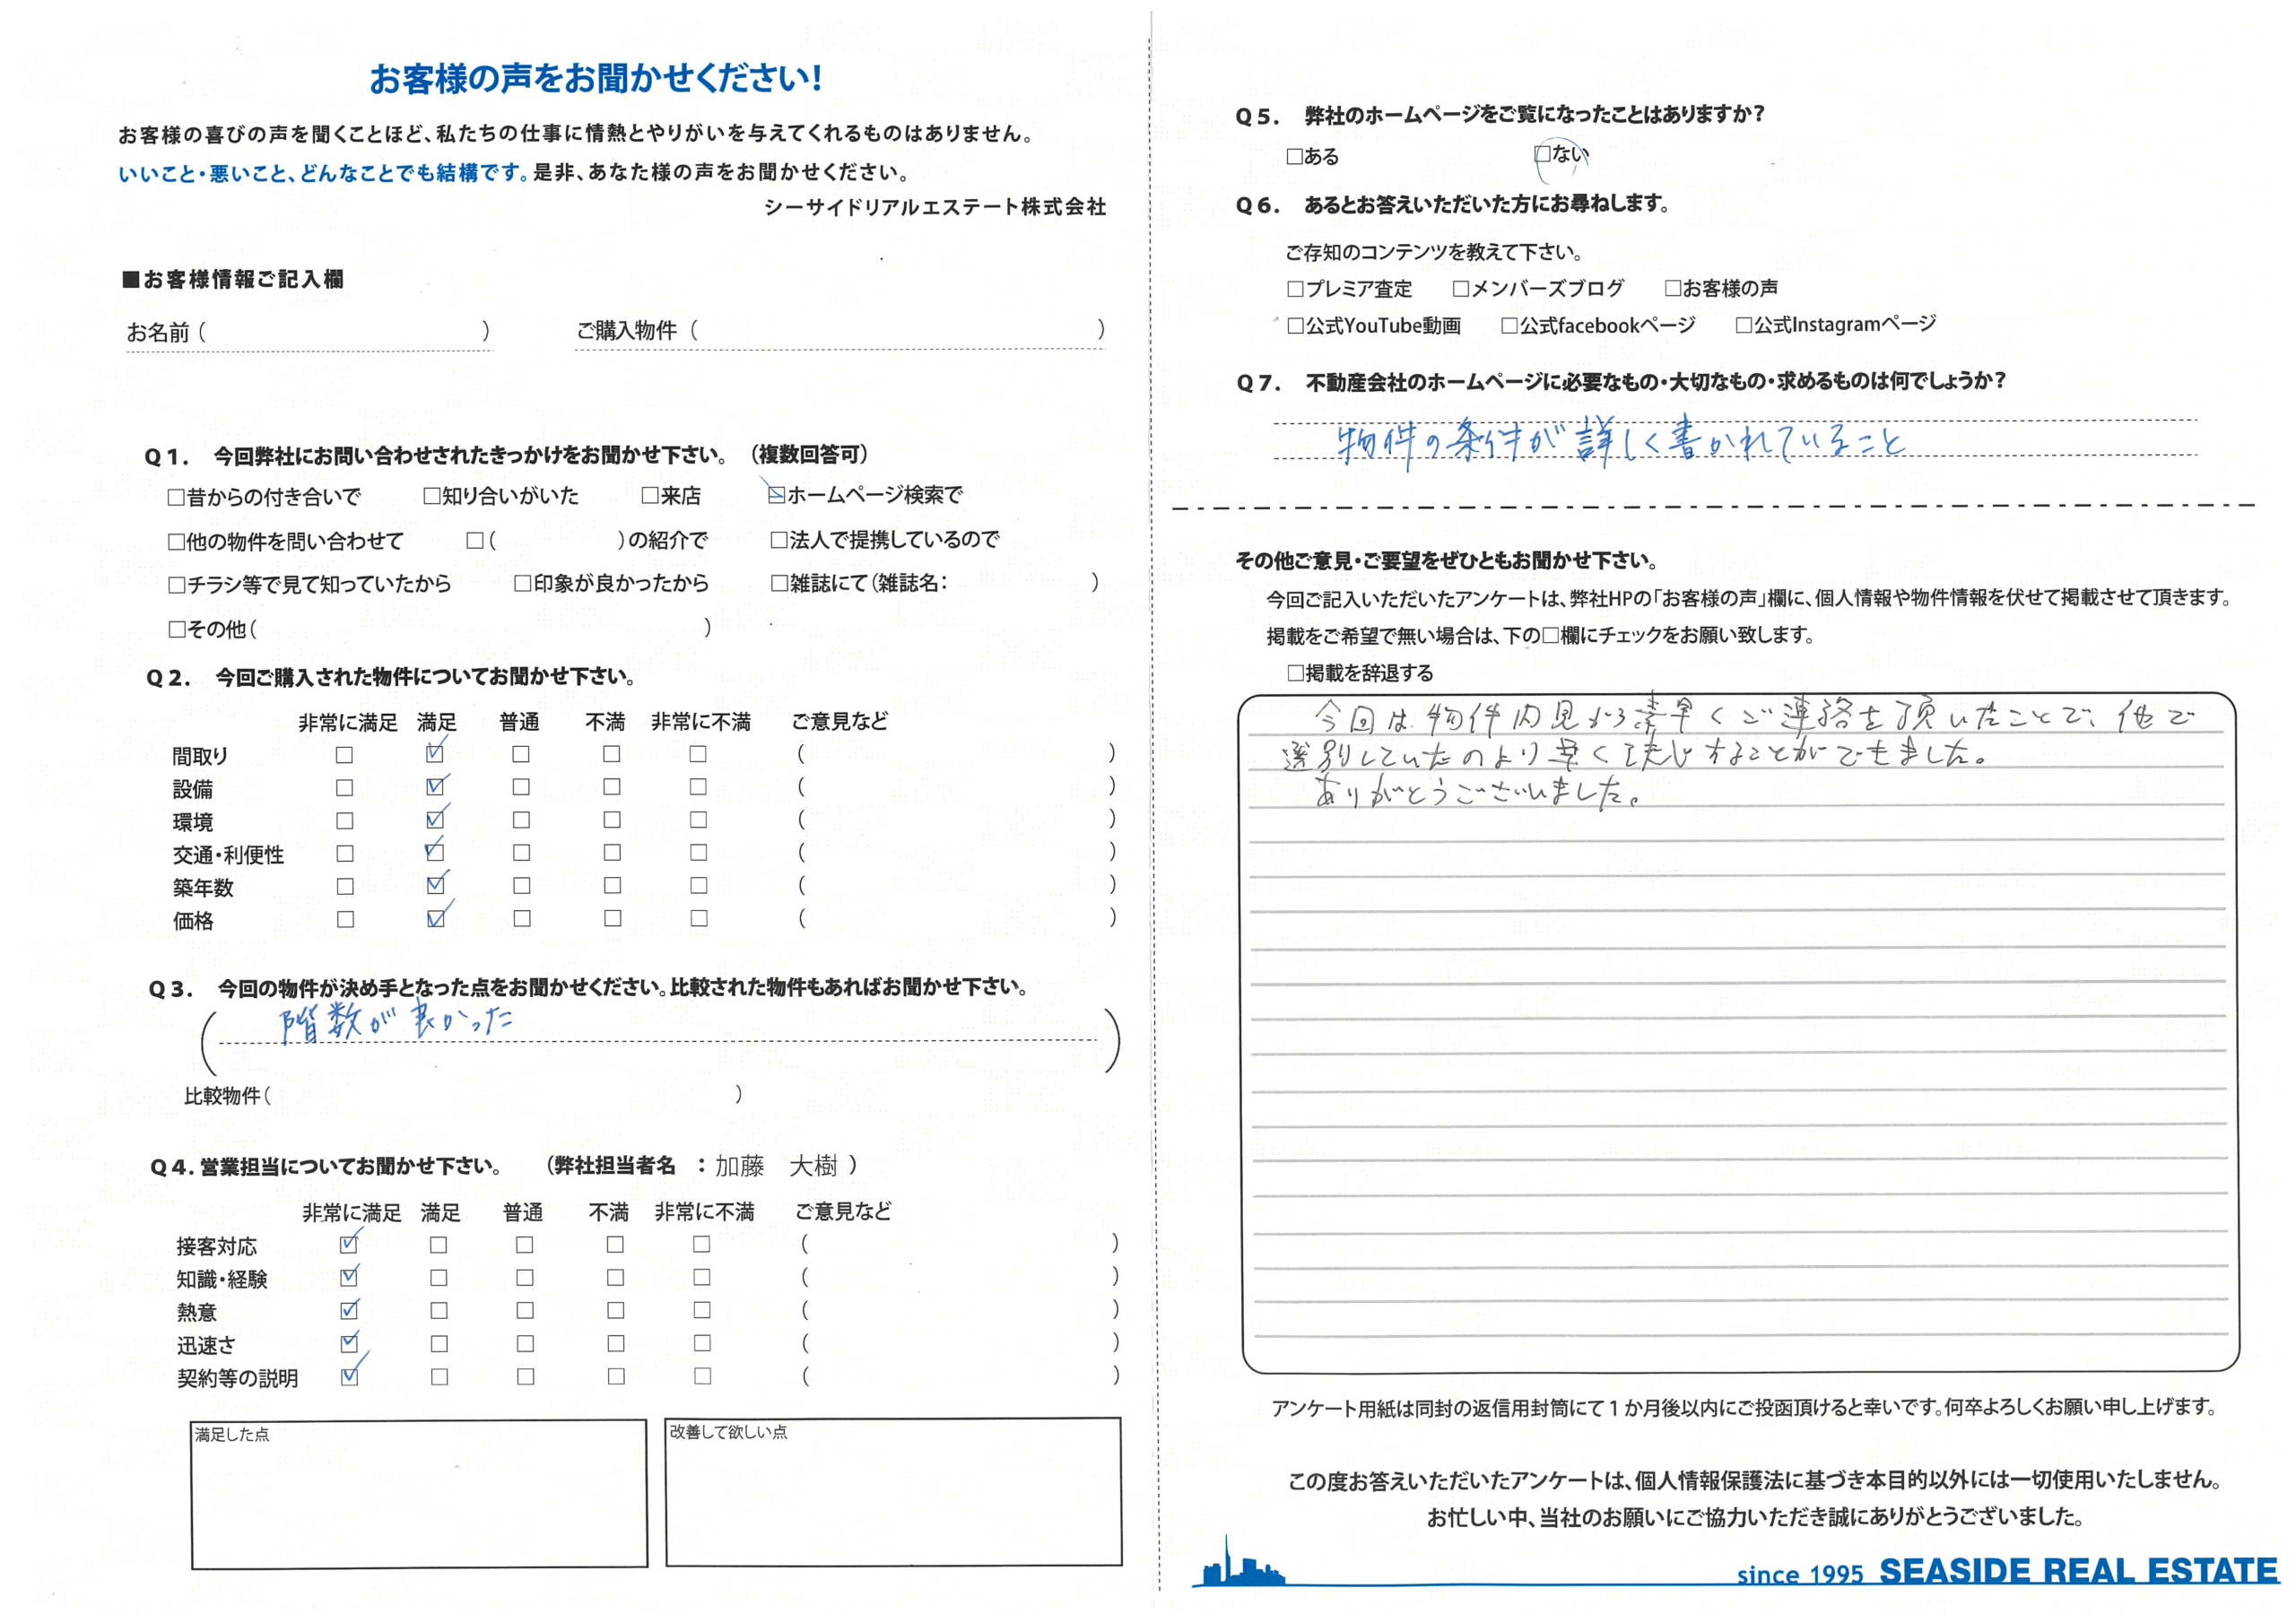 お客様の声をお聞かせください!
お客様の喜びの声を聞くことほど、私たちの仕事に情熱とやりがいを与えてくれるものはありません。
いいこと・悪いこと、どんなことでも結構です。是非、あなた様の声をお聞かせください。
シーサイドリアルエステート株式会社
■お客様情報ご記入欄
お名前( ) ご購入物件( )
Q1. 今回弊社にお問い合わせされたきっかけをお聞かせ下さい。(複数回答可)
□昔からの付き合いで □知り合いがいた □来店 ☑ホームページ検索で
□他の物件を問い合わせて □( )の紹介で □法人で提携しているので
□チラシ等で見て知っていたから □印象が良かったから □雑誌にて(雑誌名: )
□その他( )
Q2. 今回ご購入された物件についてお聞かせ下さい。
非常に満足 満足 普通 不満 非常に不満 ご意見など
間取り □ ☑ □ □ □ ( )
設備 □ ☑ □ □ □ ( )
環境 □ ☑ □ □ □ ( )
交通・利便性 □ ☑ □ □ □ ( )
築年数 □ ☑ □ □ □ ( )
価格 □ ☑ □ □ □ ( )
Q3. 今回の物件が決め手となった点をお聞かせください。比較された物件もあればお聞かせ下さい。
( 階数が良かった )
比較物件( )
Q4. 営業担当についてお聞かせ下さい。 (弊社担当者名 : 加藤 大樹 )
非常に満足 満足 普通 不満 非常に不満 ご意見など
接客対応 ☑ □ □ □ □ ( )
知識・経験 ☑ □ □ □ □ ( )
熱意 ☑ □ □ □ □ ( )
迅速さ ☑ □ □ □ □ ( )
契約等の説明 ☑ □ □ □ □ ( )
満足した点 改善して欲しい点
Q5. 弊社のホームページをご覧になったことはありますか?
□ある □ない
Q6. あるとお答えいただいた方にお尋ねします。
ご存知のコンテンツを教えて下さい。
□プレミア査定 □メンバーズブログ □お客様の声
□公式YouTube動画 □公式facebookページ □公式Instagramページ
Q7. 不動産会社のホームページに必要なもの・大切なもの・求めるものは何でしょうか?
物件の条件が詳しく書かれていること
その他ご意見・ご要望をぜひともお聞かせ下さい。
今回ご記入いただいたアンケートは、弊社HPの「お客様の声」欄に、個人情報や物件情報を伏せて掲載させて頂きます。
掲載をご希望で無い場合は、下の□欄にチェックをお願い致します。
□掲載を辞退する
今回は物件内見から素早くご連絡を頂いたことで、他で
選別していたのより早く決断することができました。
ありがとうございました。
アンケート用紙は同封の返信用封筒にて1か月後以内にご投函頂けると幸いです。何卒よろしくお願い申し上げます。
この度お答えいただいたアンケートは、個人情報保護法に基づき本目的以外には一切使用いたしません。
お忙しい中、当社のお願いにご協力いただき誠にありがとうございました。
since 1995 SEASIDE REAL ESTATE